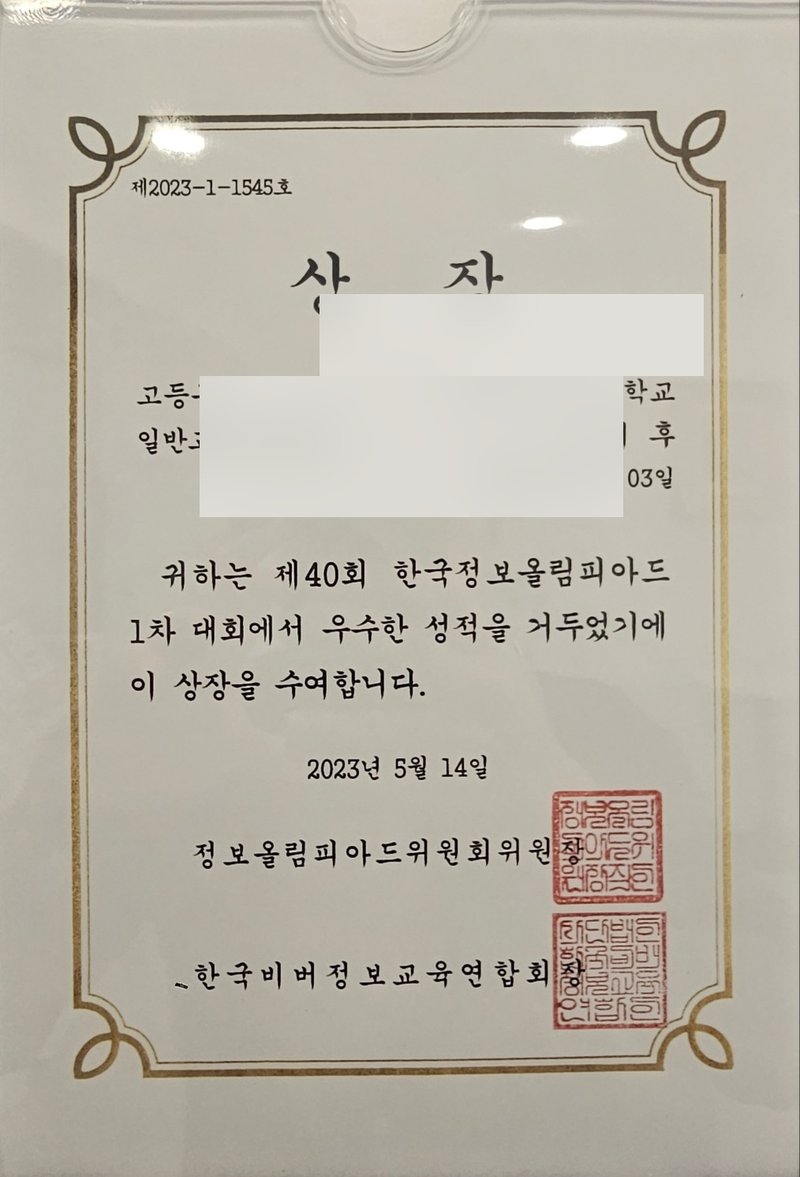 제2023-1-1545호
상 장
고등
학교
일반
후
03일
귀하는 제40회 한국정보올림피아드
1차 대회에서 우수한 성적을 거두었기에
이 상장을 수여합니다.
2023년 5월 14일
정보올림피아드위원회위원장
한국비버정보교육연합회장